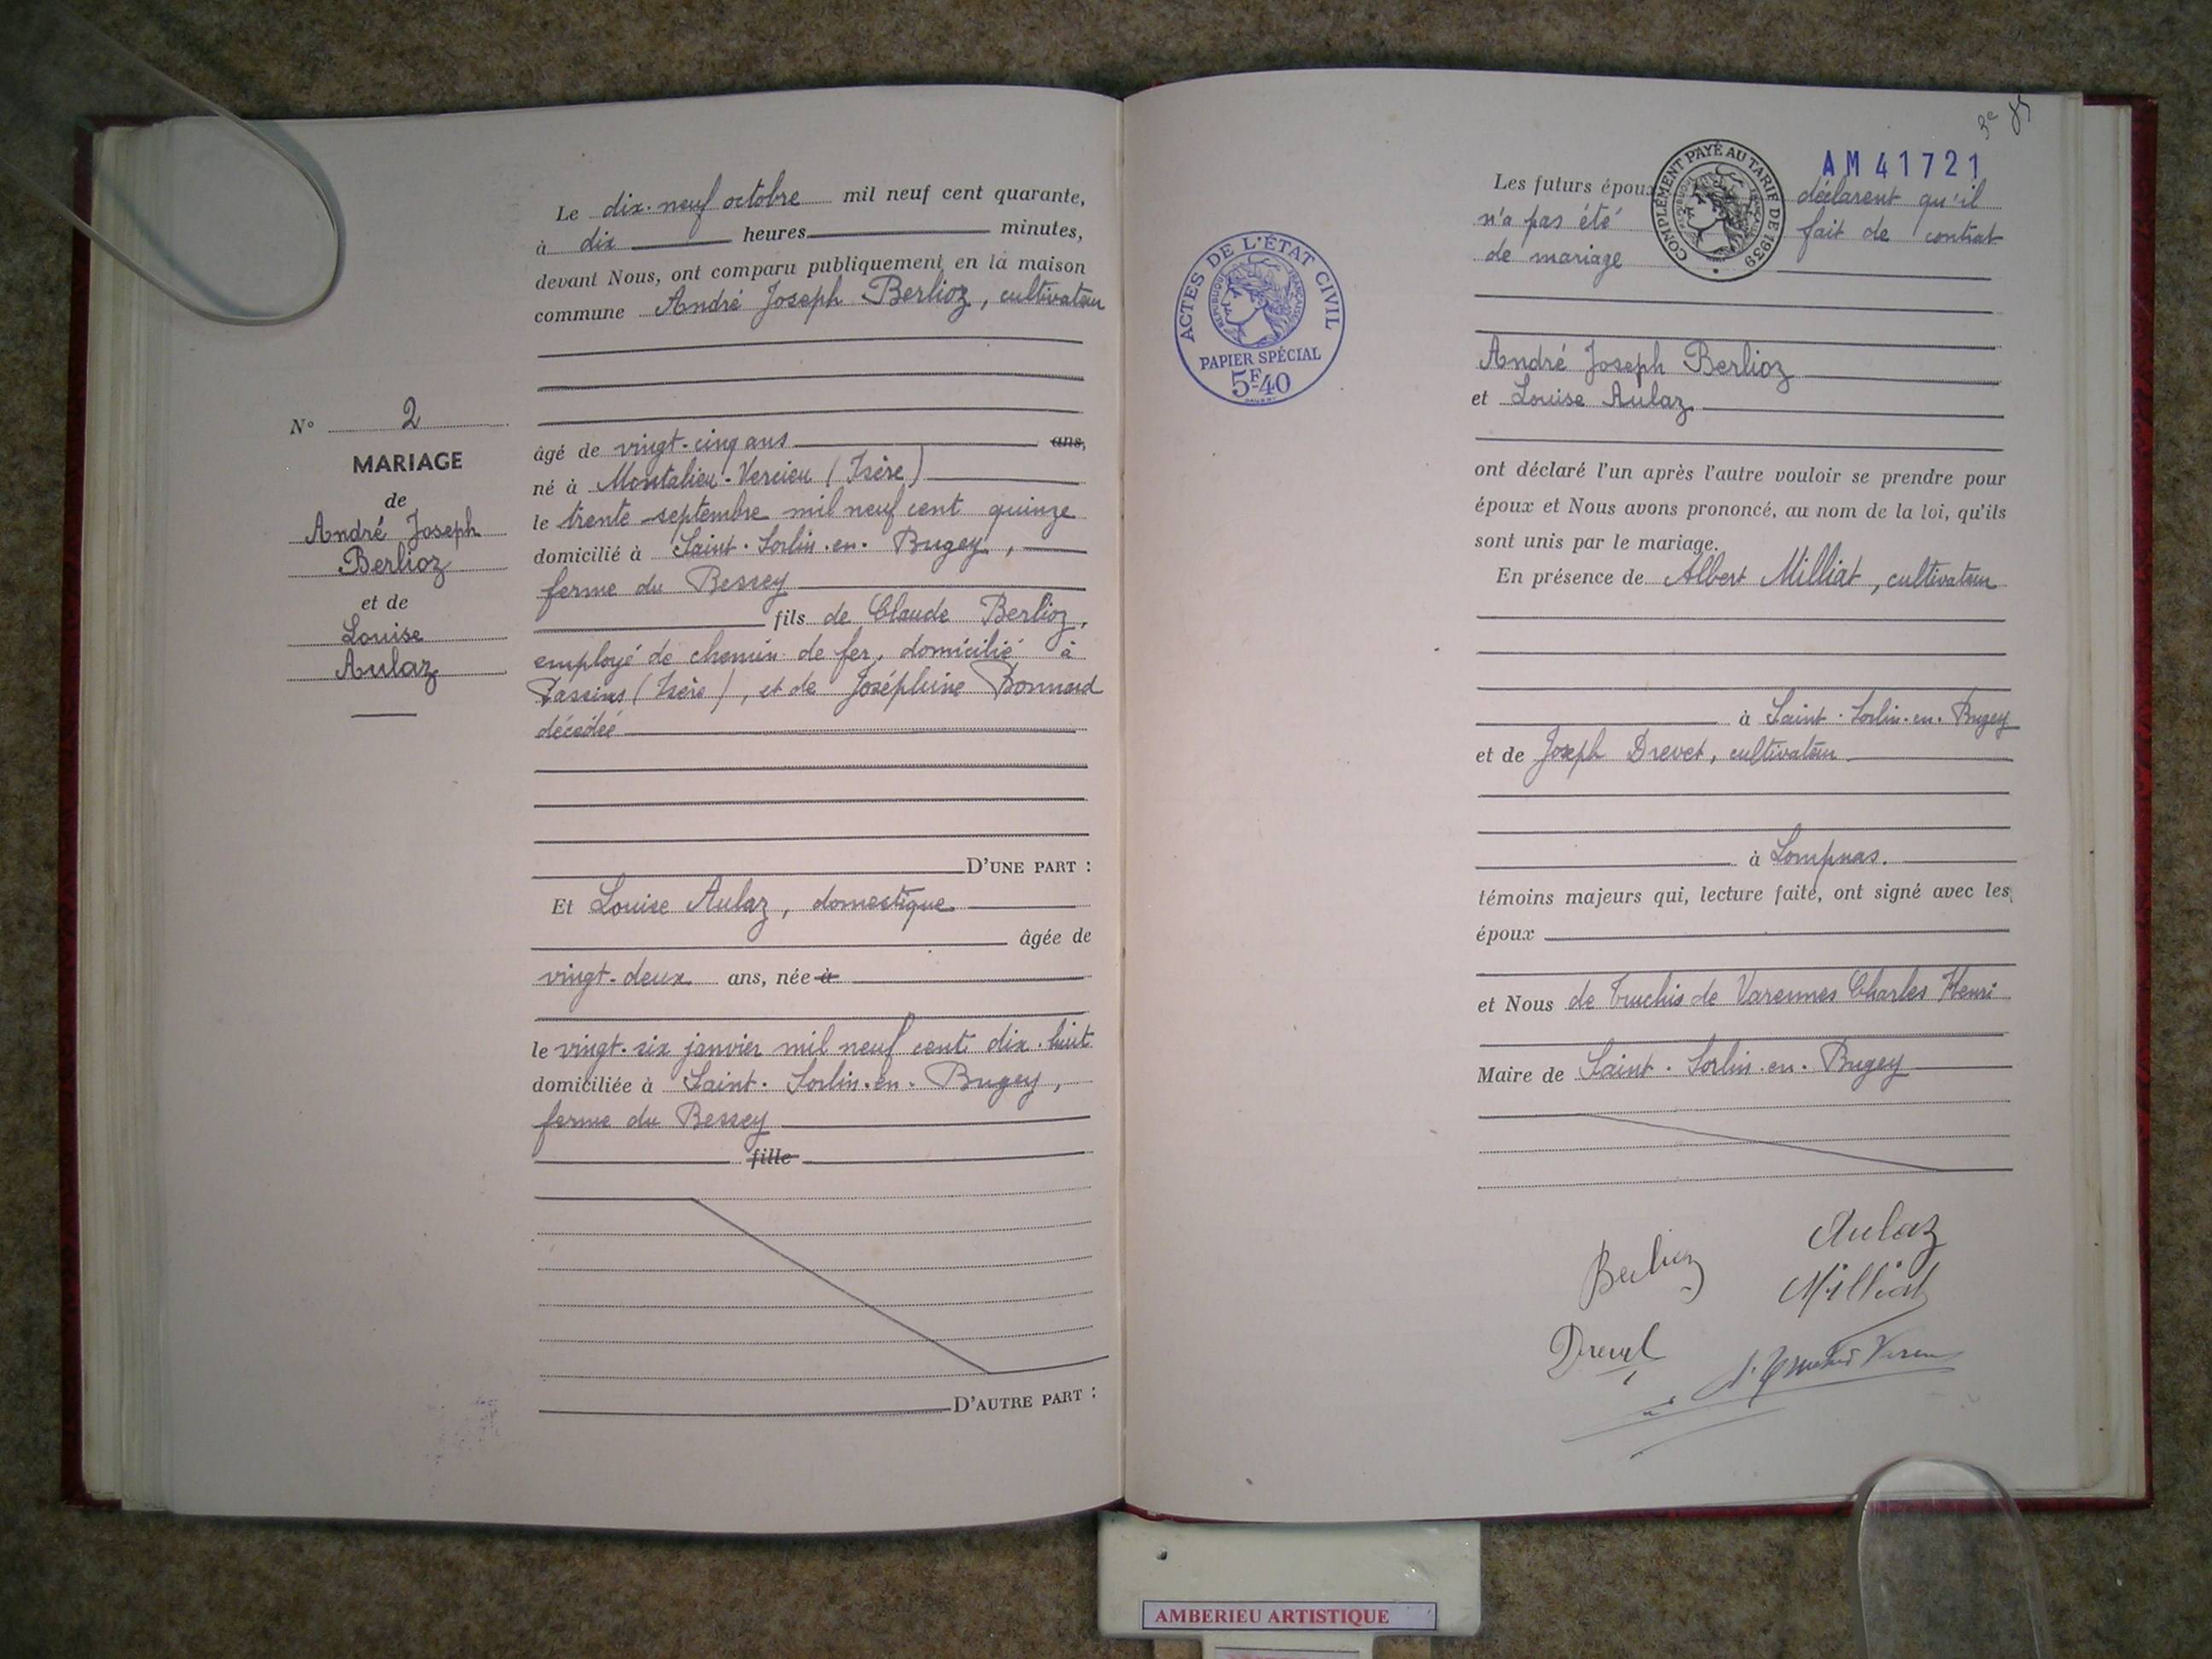 N° 2
MARIAGE
de
André Joseph
Berlioz
et de
Louise
Aulaz
Le dix-neuf octobre mil neuf cent quarante,
à dix heures minutes,
devant Nous, ont comparu publiquement en la maison
commune André Joseph Berlioz, cultivateur
âgé de vingt-cinq ans ans,
né à Montalieu-Vercieu (Isère)
le trente septembre mil neuf cent quinze
domicilié à Saint-Sorlin-en-Bugey,
ferme du Bessey
fils de Claude Berlioz,
employé de chemin de fer, domicilié à
Passins (Isère), et de Joséphine Bonnard
décédée
D'UNE PART :
Et Louise Aulaz, domestique
âgée de
vingt-deux ans, née à
le vingt-six janvier mil neuf cent dix-huit
domiciliée à Saint-Sorlin-en-Bugey,
ferme du Bessey
fille
D'AUTRE PART :
ACTES DE L'ÉTAT CIVIL
RÉPUBLIQUE FRANÇAISE
PAPIER SPÉCIAL
5F40
COMPLÉMENT PAYÉ AU TARIF DE 1939
AM 41721
Les futurs époux déclarent qu'il
n'a pas été fait de contrat
de mariage
André Joseph Berlioz
et Louise Aulaz
ont déclaré l'un après l'autre vouloir se prendre pour
époux et Nous avons prononcé, au nom de la loi, qu'ils
sont unis par le mariage.
En présence de Albert Milliat, cultivateur
à Saint-Sorlin-en-Bugey
et de Joseph Drevet, cultivateur
à Lompnas.
témoins majeurs qui, lecture faite, ont signé avec les
époux
et Nous de Truchis de Varennes Charles Henri
Maire de Saint-Sorlin-en-Bugey
Berlioz
Aulaz
Milliat
Drevet
AMBERIEU ARTISTIQUE